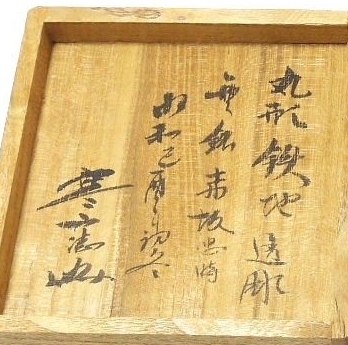 丸形鉄地透彫
無銘赤坂忠時
昭和己酉初冬
寒山誌